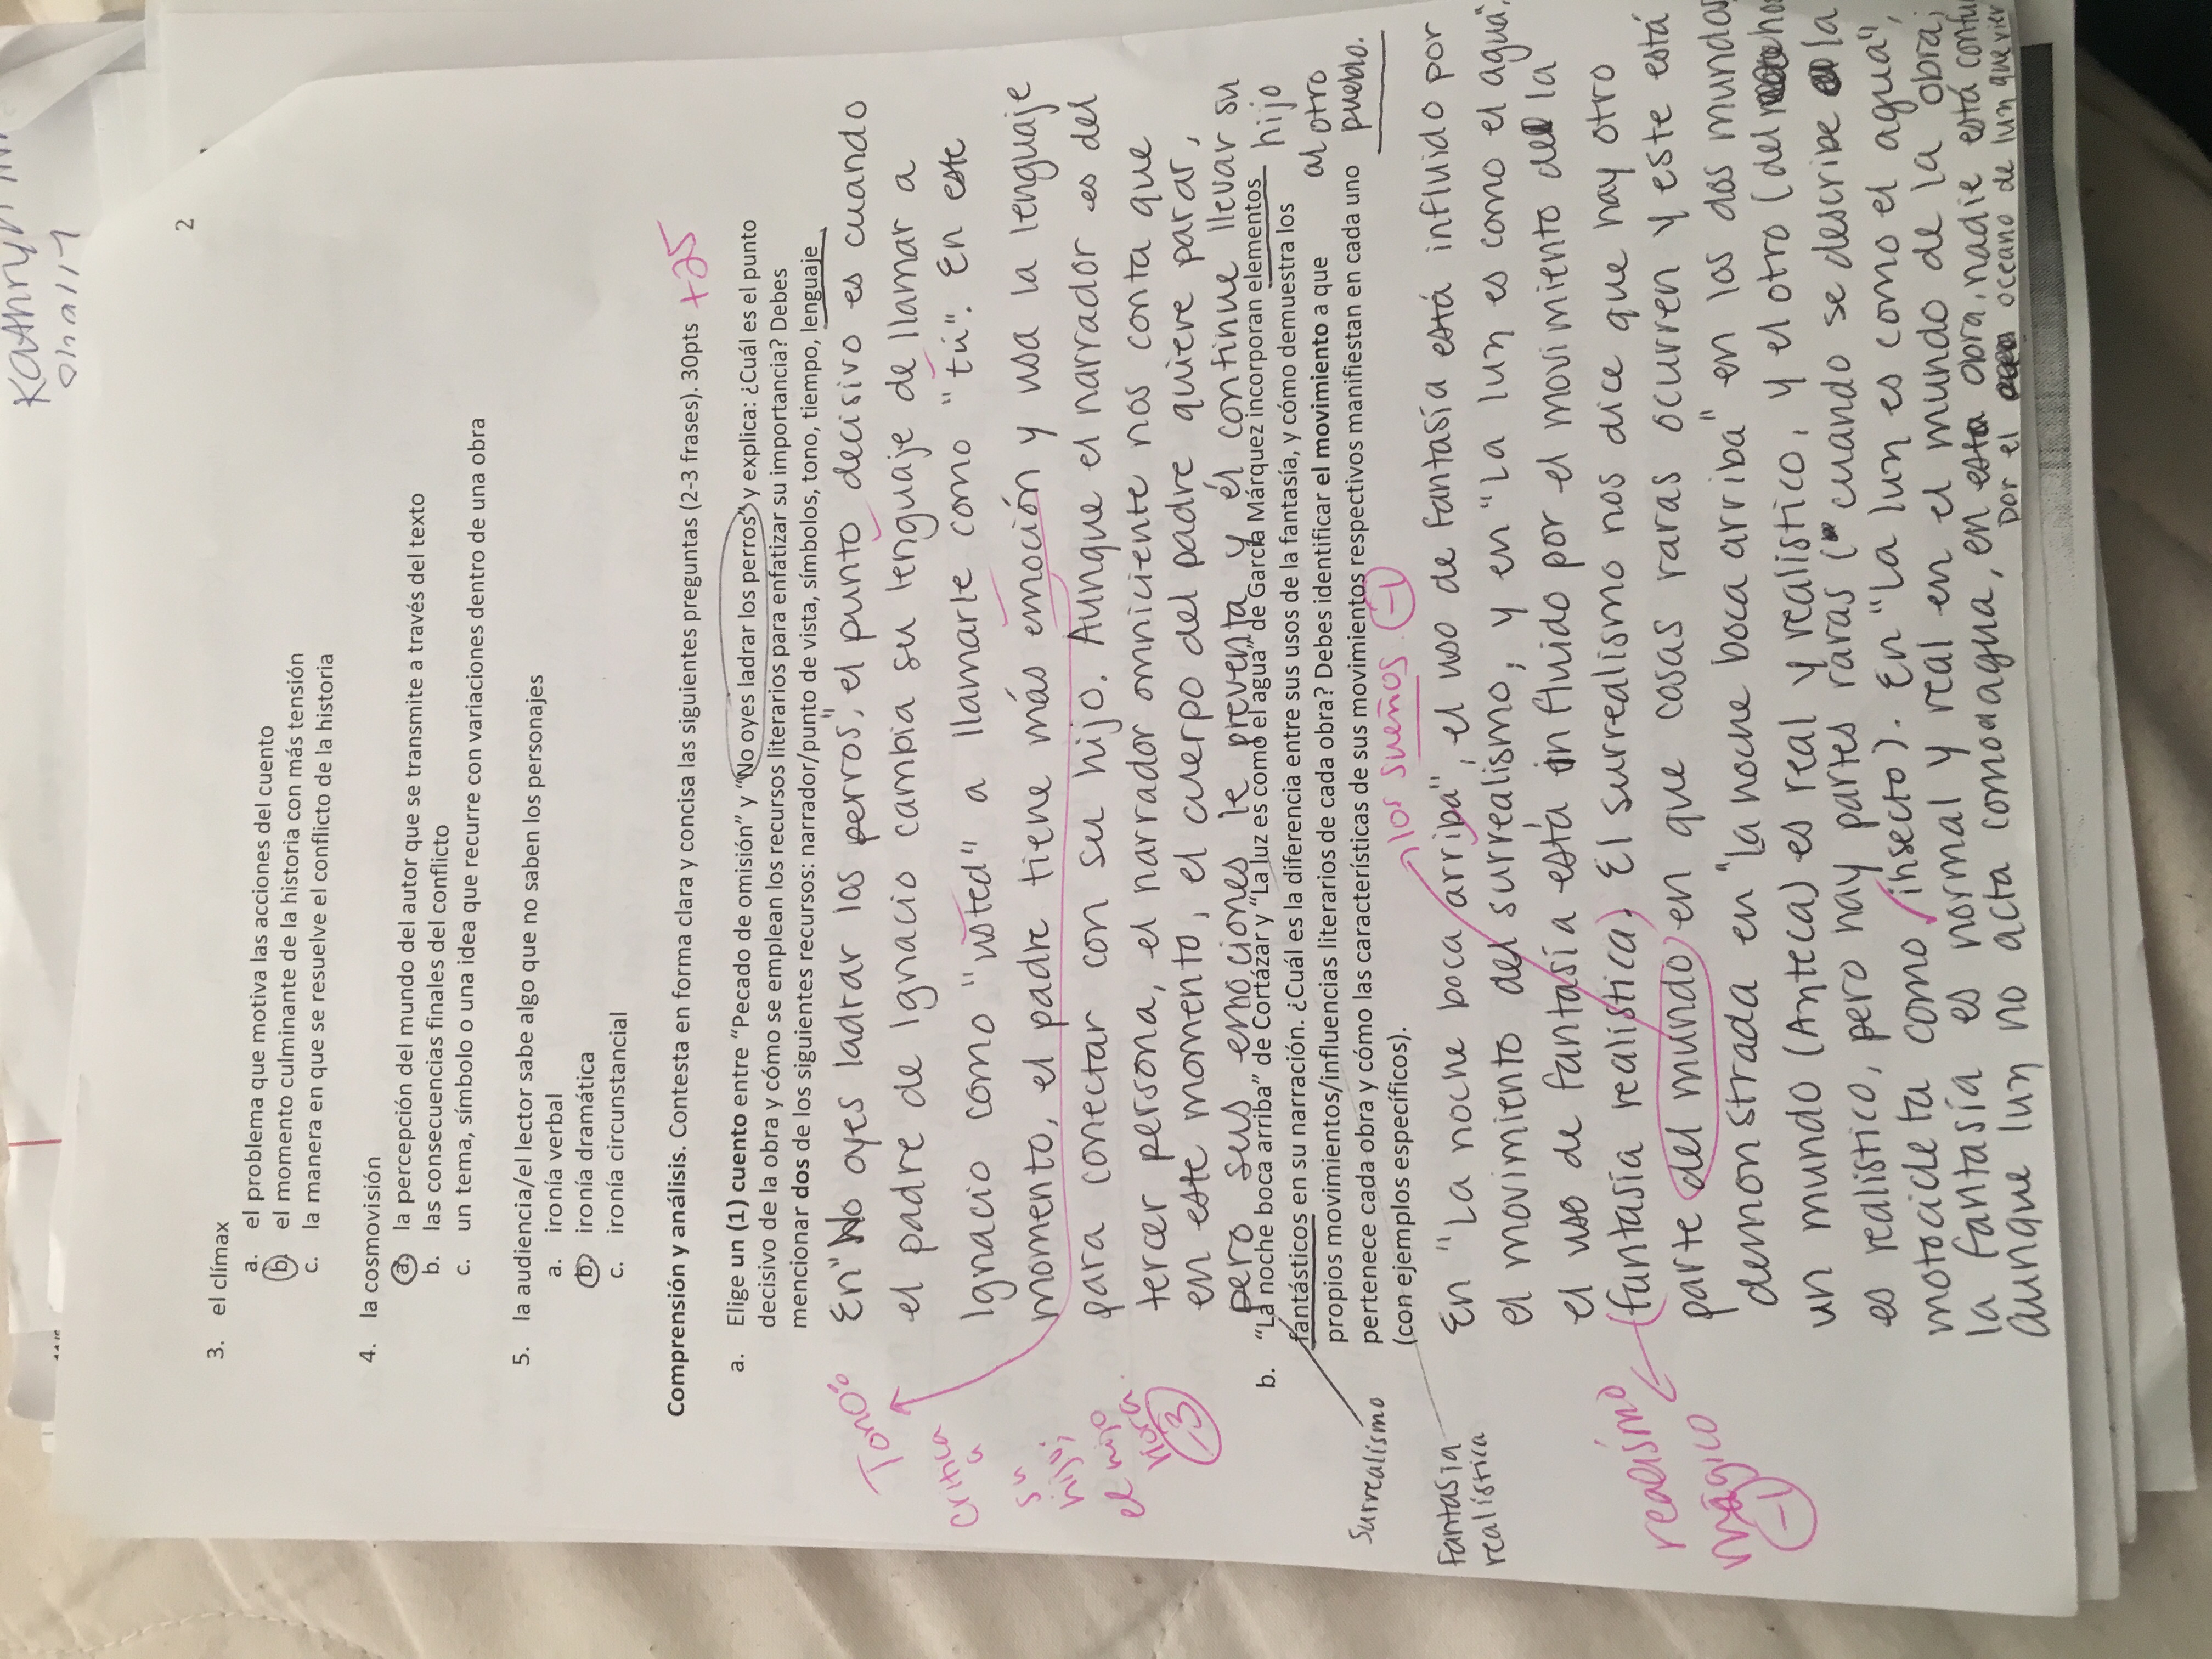 Kathryn
2
3. el clímax
a. el problema que motiva las acciones del cuento
b. el momento culminante de la historia con más tensión
c. la manera en que se resuelve el conflicto de la historia
4. la cosmovisión
a. la percepción del mundo del autor que se transmite a través del texto
b. las consecuencias finales del conflicto
c. un tema, símbolo o una idea que recurre con variaciones dentro de una obra
5. la audiencia/el lector sabe algo que no saben los personajes
a. ironía verbal
b. ironía dramática
c. ironía circunstancial
Comprensión y análisis. Contesta en forma clara y concisa las siguientes preguntas (2-3 frases). 30pts +25
a. Elige un (1) cuento entre "Pecado de omisión" y "No oyes ladrar los perros" y explica: ¿Cuál es el punto
decisivo de la obra y cómo se emplean los recursos literarios para enfatizar su importancia? Debes
mencionar dos de los siguientes recursos: narrador/punto de vista, símbolos, tono, tiempo, lenguaje
En "No oyes ladrar los perros", el punto decisivo es cuando
el padre de Ignacio cambia su lenguaje de llamar a
Ignacio como "usted" a llamarle como "tú". En este
momento, el padre tiene más emoción y usa la lenguaje
para conectar con su hijo. Aunque el narrador es del
tercer persona, el narrador omniciente nos conta que
en este momento, el cuerpo del padre quieve parar,
pero sus emociones le preventa y él continue llevar su
hijo
al otro
pueblo.
Tono:
critica
a
su
hijo;
el hijo
llora.
-3
b. "La noche boca arriba" de Cortázar y "La luz es como el agua" de García Márquez incorporan elementos
fantásticos en su narración. ¿Cuál es la diferencia entre sus usos de la fantasía, y cómo demuestra los
propios movimientos/influencias literarios de cada obra? Debes identificar el movimiento a que
pertenece cada obra y cómo las características de sus movimientos respectivos manifiestan en cada uno
(con ejemplos específicos).
Surrealismo
Fantasia
realística
los sueños -1
En "La noche boca arriba", el uso de fantasía está influido por
el movimiento del surrealismo, y en "La luz es como el agua",
el uso de fantasía está influido por el movimiento de la
(fantasía realística). El surrealismo nos dice que hay otro
parte del mundo en que cosas raras ocurren y este está
demonstrada en "la noche boca arriba" en los dos mundos
un mundo (Azteca) es real y realistico, y el otro (del
es realístico, pero hay partes raras (cuando se describe la
motocicleta como insecto). En "La luz es como el agua",
la fantasía es normal y real en el mundo de la obra;
aunque luz no acta como agua, en esta obra, nadie está
por el oceano de luz que
realismo
mágico
-1